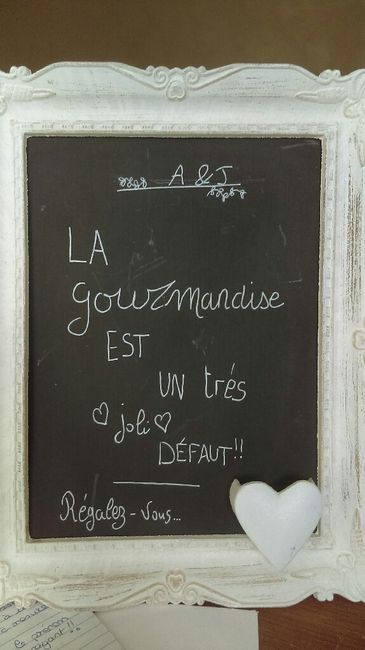 A & J
LA
gourmandise
EST
UN trés
joli
DÉFAUT!!
Régalez-vous...
le prénom